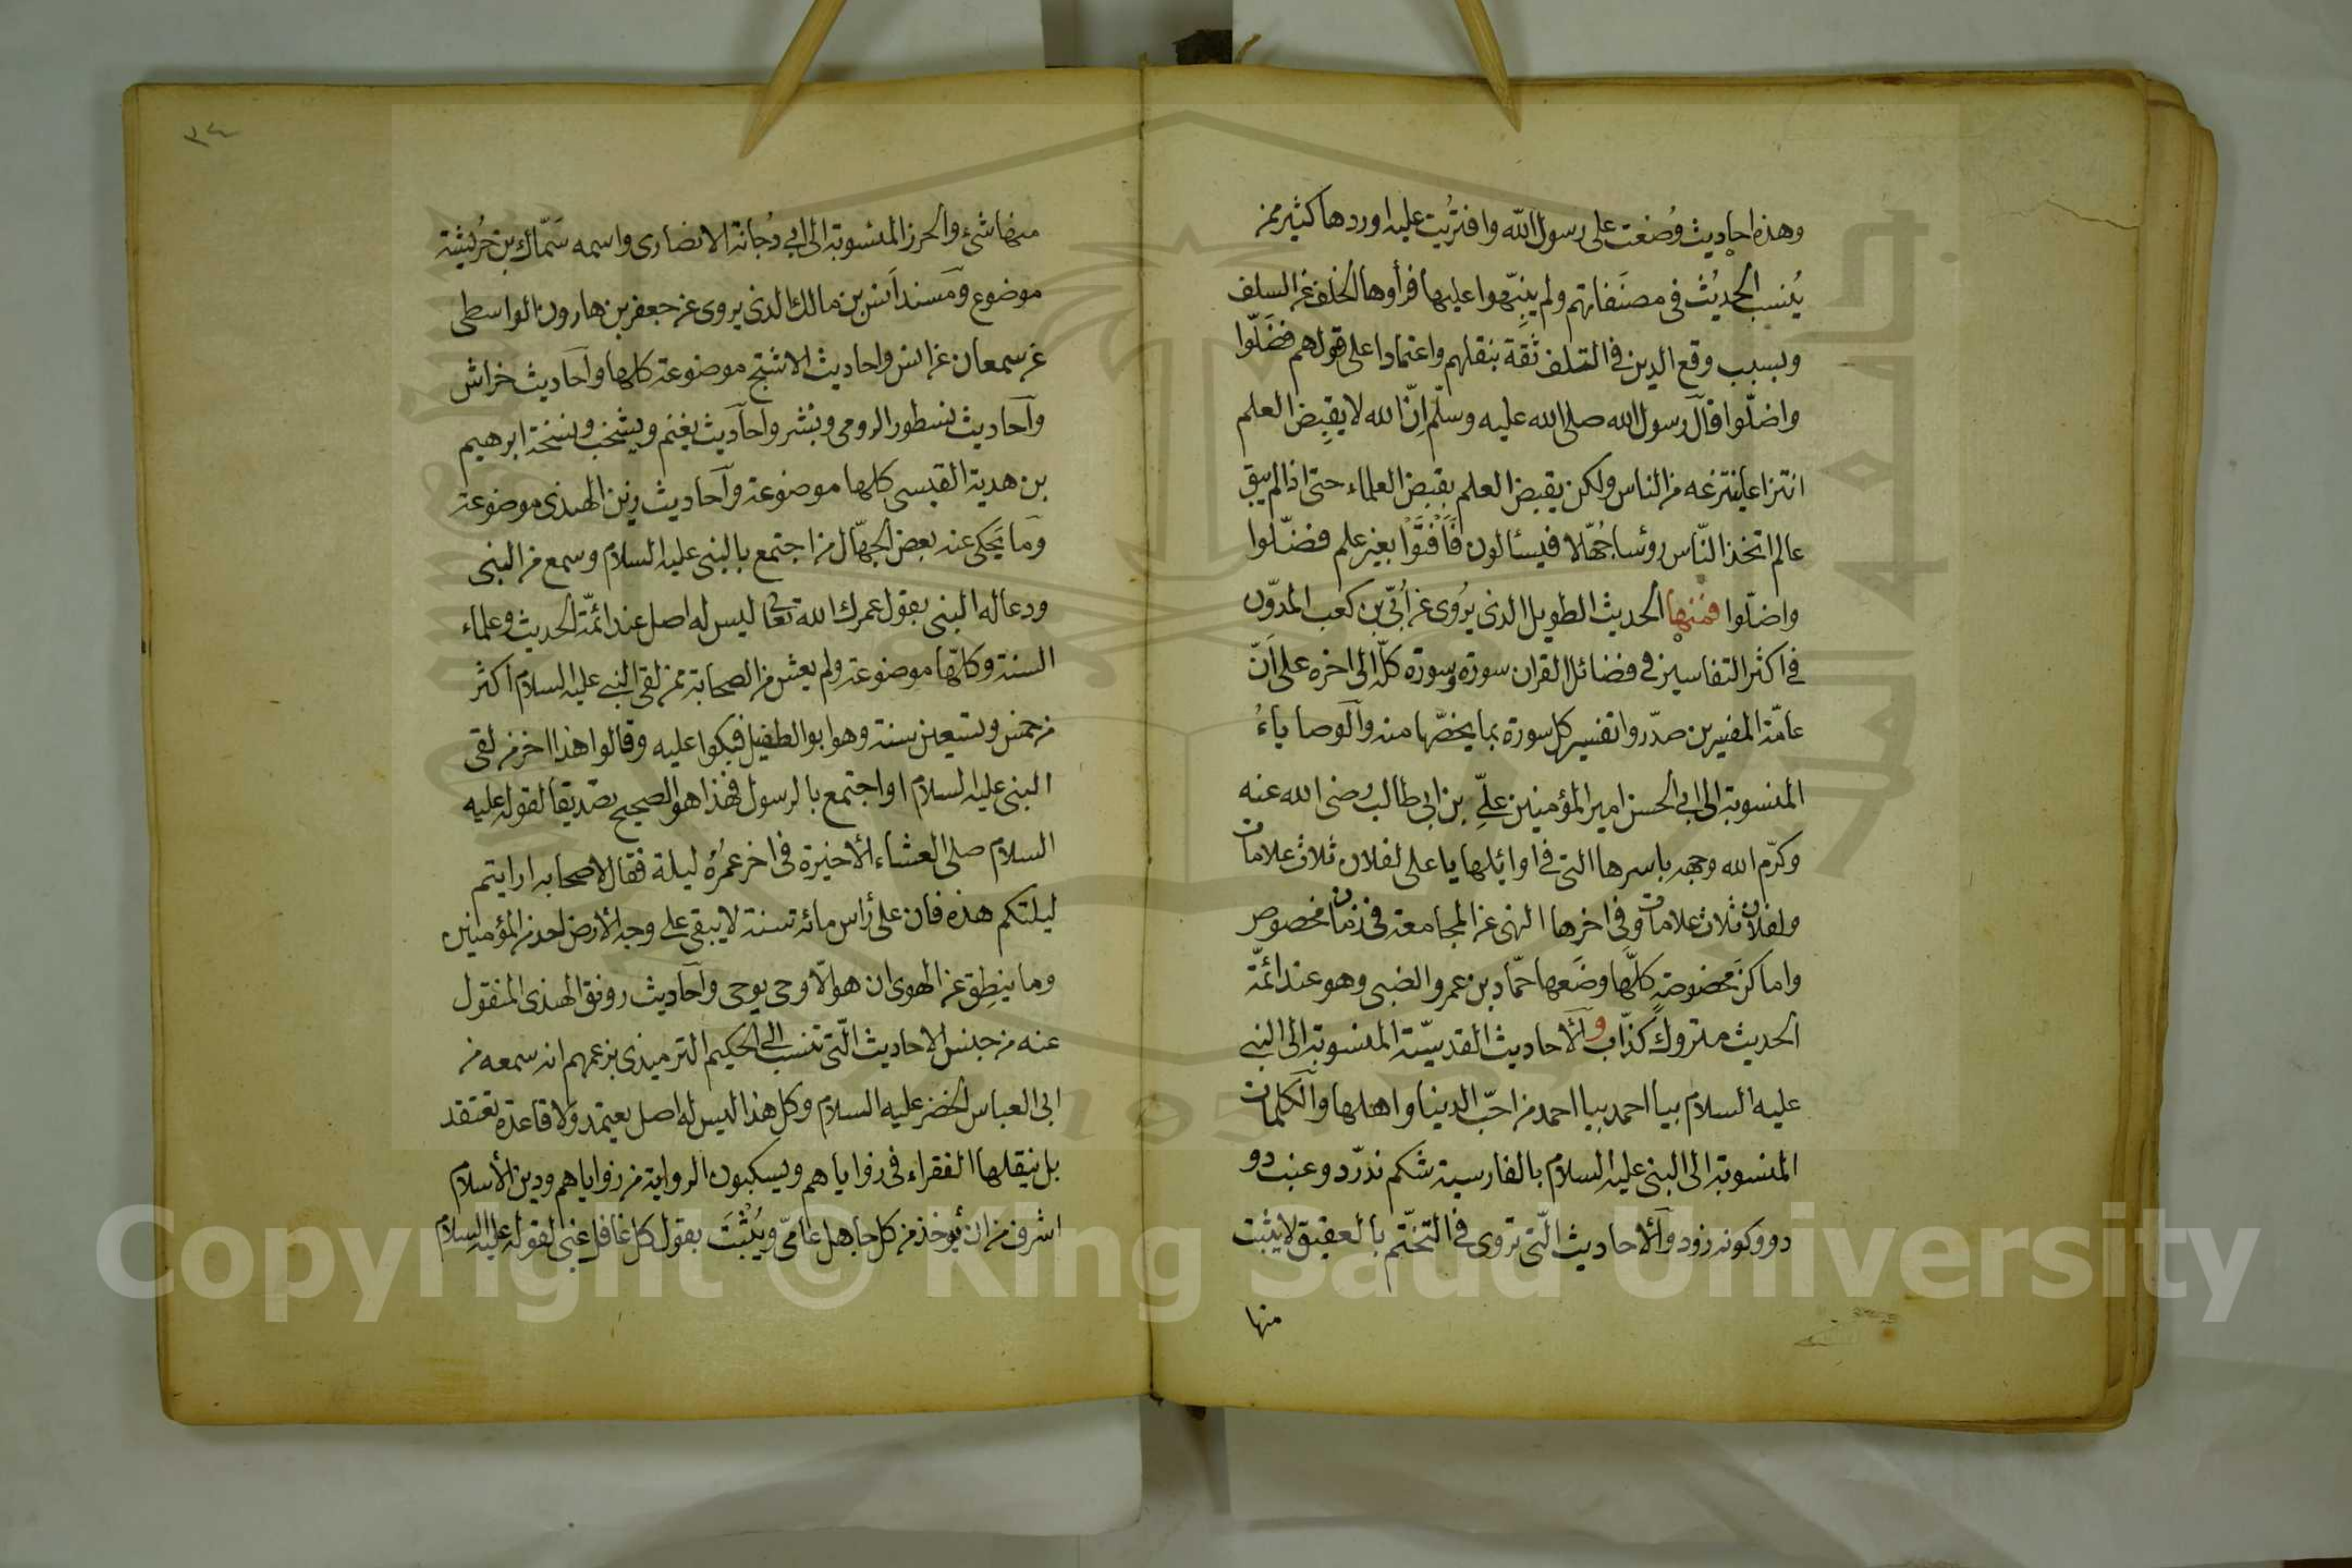 وهذه احاديث وُضعت على رسول الله وافتريت عليه اوردها كثير ممن
يُنسب الحديث في مصنفاتهم ولم ينبّهوا عليها فرأوها الخلف عن السلف
وبسبب وقع الدين في التلف ثقة بنقلهم واعتمادا على قولهم فضَلّوا
واضلّوا قال رسول الله صلى الله عليه وسلّم إنّ الله لا يقبض العلم
انتزاعا ينتزعه من الناس ولكن يقبض العلم بقبض العلماء حتى اذا لم يبق
عالم اتخذ النّاس رؤسا جُهّلا فيسئالون فَأَفْتَوْا بغير علم فضّلوا
واضلّوا فمنها الحديث الطويل الذى يُروى عن أُبّي بن كعب المدوّن
في اكثر التفاسير في فضائل القران سورة وسورة كلّه الى اخره على أنّ
عامّة المفسرين صدّروا تفسير كل سورة بما يخصّها منه والوصاياءُ
المنسوبة الى ابي الحسن امير المؤمنين علىِّ بن ابى طالب رضى الله عنه
وكرّم الله وجهه باسرها التى في اوائلها يا على لفلان ثلاث علامات
ولفلان ثلاث علامات وفى اخرها النهى عن المجامعة في زمان مخصوص
واماكن مخصوصةٍ كلّها وضَعها حمّاد بن عمرو الضبى وهو عند ائمّة
الحديث متروك كذّاب و الأحاديث القدسيّة المنسوبة الى النبى
عليه السلام بيا احمد بيا احمد من احبّ الدينا واهلها والكلمات
المنسوبة الى النبى عليه السلام بالفارسية شكم ندرّد وعنب دو
دو وكونه زود والأحاديث الّتى تروى في التختّم بالعقيق لا يثبت
منها
٣٤
منها شئ والحرز المنسوبة الى ابي دُجانة الانصارى واسمه سَمّاك بن خرُيشة
موضوع ومسند انس بن مالك الذى يروى عن جعفر بن هارون الواسطى
عن سمعان عن انس واحاديث الاشتج موضوعة كلها واحاديث خراش
وآحاديث نسطور الرومى وبُشر واحاديث يغنم ويشخب ونسخة ابرهيم
بن هدية القيسى كلها موضوعة واحاديث رتن الهندى موضوعة
وما يَحكى عنه بعض الجهّال من اجتمع بالنبى عليه السلام وسمع من النبى
ودعا له النبى بقول عمرك الله تعالى ليس له اصل عند ائمّة الحديث وعلماء
السنة وكلّها موضوعة ولم يعش من الصحابة ممن لقى النبى عليه السلام اكثر
من خمس وتسعين سنة وهو ابو الطفيل فبكوا عليه وقالوا هذا اخر من لقى
النبى عليه السلام او اجتمع بالرسول فهذا هو الصحيح تصديقا لقوله عليه
السلام صلى العشاء الأخيرة في اخر عمُرُه ليلة فقال لاصحابه ارايتم
ليلتكم هذه فان على رأس مائة سنة لا يبقى على وجه الأرض احد من المؤمنين
وما ينطق عن الهوى ان هو الّا وحى يوحى واحاديث رونق الهندى المنقول
عنه من جنس الاحاديث الّتى تنسب الى الحكيم الترميذى بزعمهم انه سمعه من
ابى العباس الخضر عليه السلام وكل هذا ليس له اصل يعتمد ولا قاعدة تعتقد
بل ينقلها الفقراء في زواياهم ويسكبون الرواية من زواياهم ودين الأسلام
اشرف من ان يؤخذ من كل جاهل عامّى ويُثْبَت بقول كل غافل غبى لقوله عليه السلام
Copyright © King Saud University